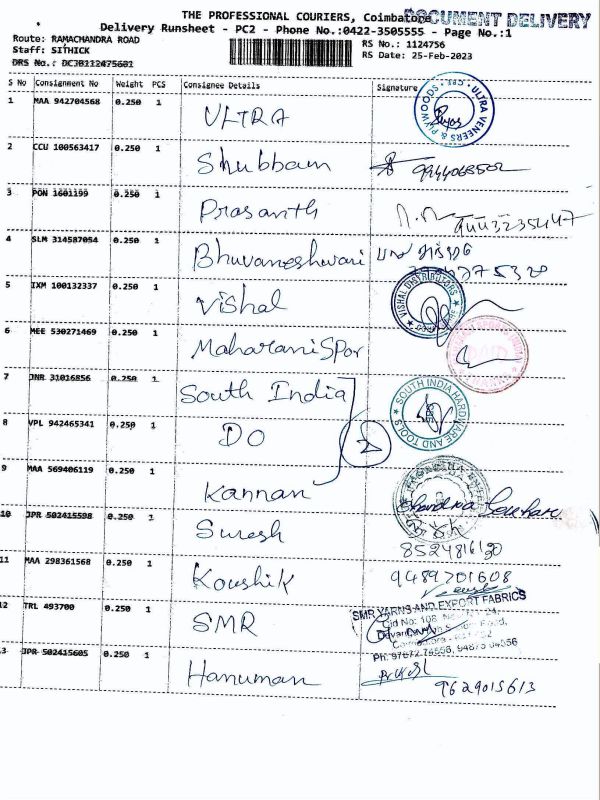 THE PROFESSIONAL COURIERS, Coimbatore
DOCUMENT DELIVERY
Delivery Runsheet - PC2 - Phone No.:0422-3505555 - Page No.:1
Route: RAMACHANDRA ROAD
RS No.: 1124756
Staff: SITHICK
RS Date: 25-Feb-2023
DRS No.: DC3B112475601
S No Consignment No Weight PCS Consignee Details Signature
1 MAA 942704568 0.250 1 ULTRA
ULTRA VENEERS & PLYWOODS
2 CCU 100563417 0.250 1 Shubbam
3 PON 1601199 0.250 1 Prasanth
4 SLM 314587054 0.250 1 Bhuvaneshwari
5 IXM 100132337 0.250 1 Vishal
VISHAL DISTRIBUTORS
6 MEE 530271469 0.250 1 Maharani Spor
7 JNR 31016856 0.250 1 South India
SOUTH INDIA HARDWARE AND TOOLS
8 VPL 942465341 0.250 1 DO
2
9 MAA 569406119 0.250 1 Kannan
10 JPR 502415598 0.250 1 Suresh
8524816130
11 MAA 298361568 0.250 1 Koushik 9489701608
12 TRL 493700 0.250 1 SMR
SMR YARNS AND EXPORT FABRICS
13 JPR 502415605 0.250 1 Hanuman
9629015613